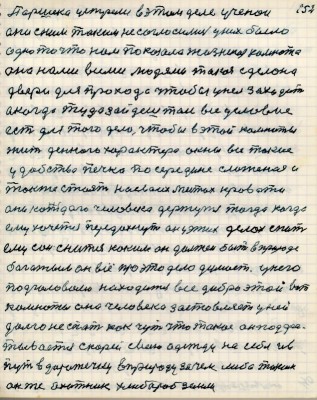 157
Паришка играли в этом деле ученой
они с ним таким не согласились у них было
одно то что нам показала жизненая комната
она нами всеми людями такая сделона
двери для прохода чтобы у нея заходить
а когда туда зайдеш там все условые
есть для того дела, чтобы в этой комнаты
жить денного характера окны все такие
удобства печка по середине сложеная и
также стоять на своих местах кровати
они каждого человека держуть тогда когда
ему хочется передохнуть он у этих делах спить
ему сон снится каким он должен быть в природе
богатым он всё про это дело думает. у него
под головою находится все добро этой вот
комноты она человека заставляет у ней
долго не спать как чуть что такое он поды-
мывается скорей свою одежду на себя и в
путь в дорожечку в природу зачем либо таким
он же охотник хлебароб земли